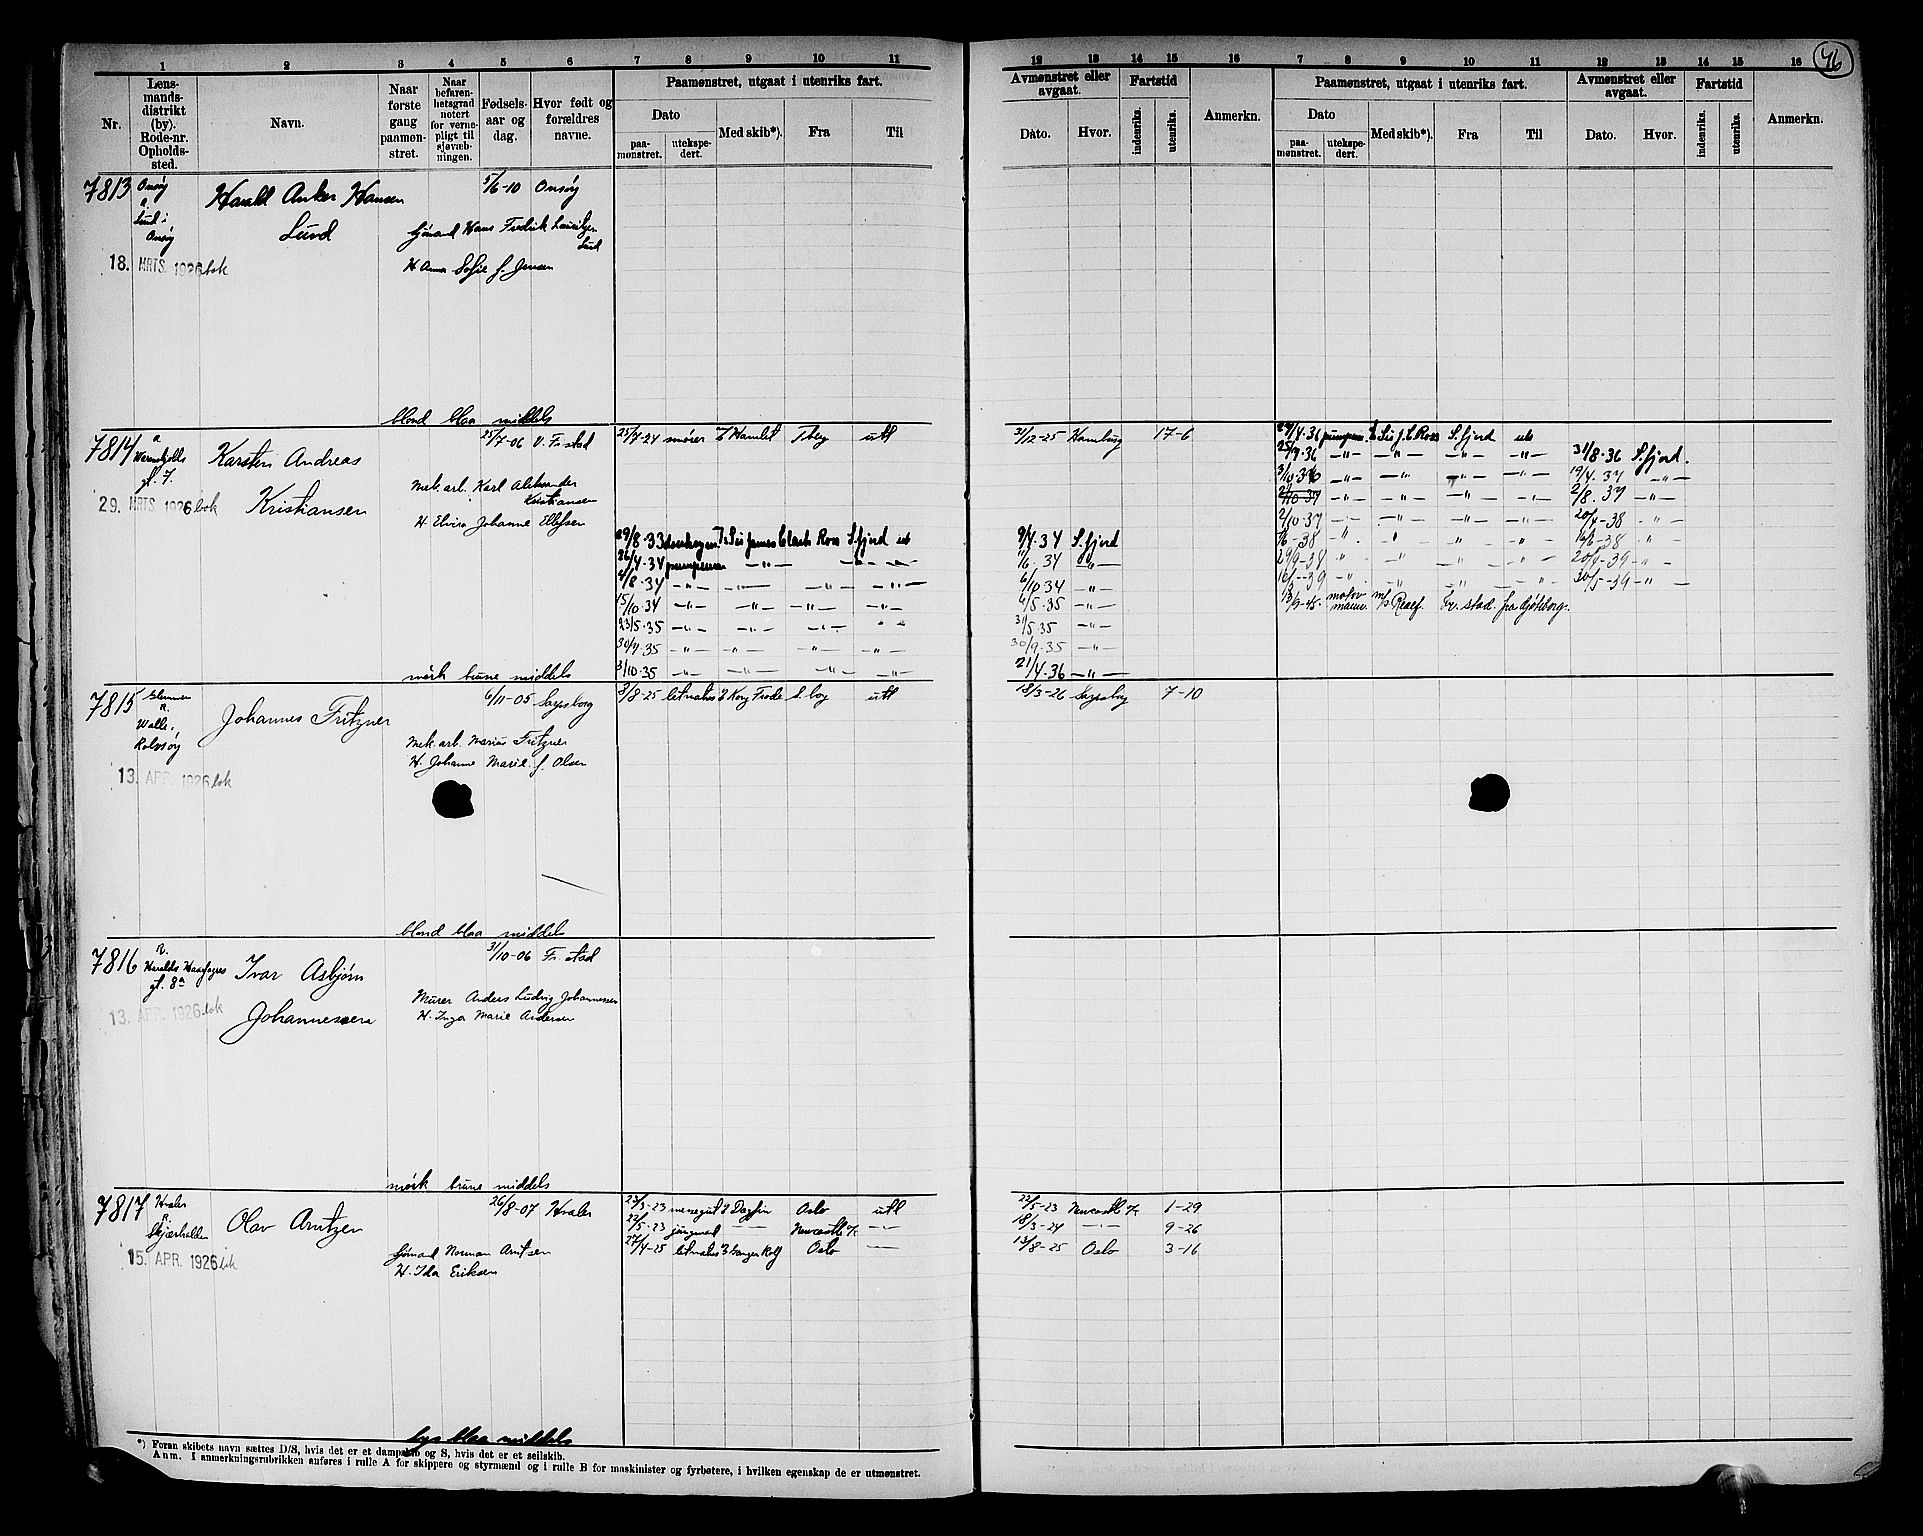 1 2 3 4 5 6 7 8 9 10 11 12 13 14 15 16 7 8 9 10 11 12 13 14 15 16
76
Nr.
Lensmandsdistrikt (by). Rode-nr. Opholdssted.
Navn.
Naar første gang paamønstret.
Naar befarenhetsgrad notert for vernepligt til sjøvæbningen.
Fødselsaar og dag.
Hvor født og forældres navne.
Paamønstret, utgaat i utenriks fart.
Dato
paamønstret.
utekspedert.
Med skib*).
Fra
Til
Avmønstret eller avgaat.
Dato.
Hvor.
Fartstid
indenriks.
utenriks.
Anmerkn.
Paamønstret, utgaat i utenriks fart.
Dato
paamønstret.
utekspedert.
Med skib*).
Fra
Til
Avmønstret eller avgaat.
Dato.
Hvor.
Fartstid
indenriks.
utenriks.
Anmerkn.
7813 Onsøy Harald Anker Hansen 5/6-10 Onsøy
Lund i
Onsøy Lund Hans Fredrik Lauritzen
Lund
18. MRTS. 1926 H. Anna Sofie f. Jensen
blond blaa middels
7814 Karsten Andreas 25/7-06 V. Fr.stad 25/4-24 smører Hamlet Tberg utl 31/12-25 Hamburg 17-6
gt. 7.
29. MRTS. 1926 Kristiansen Mek. arb. Karl Aleksander
Kristiansen
H. Elvira Johanne Ellefsen
29/8-33 Sir James Clark Ross S.fjord utl 9/4-34 S.fjord
26/4-34 pumpeman — " — 11/6 34 — " —
4/8-34 — " — 6/10 34 — " —
15/10-34 — " — 4/5-35 — " —
23/5-35 — " — 31/5-35 — " —
30/7-35 — " — 30/9-35 — " —
3/10-35 — " — 21/4-36 — " —
24/4-36 pumpem. Sir J. C. Ross S.fjord utl
25/7-36 — " — 31/8-36 S.fjord.
3/10-36 — " — 19/4-37 — " —
2/10-37 — " — 2/8-37 — " —
2/10-37 — " — 20/4-38 — " —
16/6-38 — " —
29/9-38 — " — 20/4-39 — " —
30/5-39 — " —
13/9-45. motormann. m/s Fr.stad. fra Gøteborg.
mørk brune middels
7815 Glemmen Johannes Fritzner 6/11-05 Sarpsborg 3/8-25 letmatros Kong Frode S.borg utl 18/3-26 Sarpsborg 7-10
Walle,
Rolvsøy
Mek. arb. Marius Fritzner
H. Johanne Marie f. Olsen
13. APR. 1926
blond blaa middels
7816 R. Ivar Asbjørn 31/10-06 Fr.stad
Haralds Haarfagres
gt. 8a
13. APR. 1926 Johannessen Murer Anders Ludvig Johannessen
H. Inga Marie Andersen
mørk brune middels
7817 Hvaler Olav Arntzen 26/8-07 Hvaler 23/3-23 messegut Dagfin Oslo utl 22/5-23 Newcastle 1-29
Skjærhalden 22/5-23 jungmand — Newcastle — 18/3-24 — 9-26
27/4-25 letmatros Ganger Rolf Oslo — 13/8-25 Oslo 3-16
Norman Arntsen
H. Ida Eriksen
15. APR. 1926
lys blaa middels
*) Foran skibets navn sættes D/S, hvis det er et dampskib og S, hvis det er et seilskib.
Anm. I anmerkningsrubrikken anføres i rulle A for skippere og styrmænd og i rulle B for maskinister og fyrbøtere, i hvilken egenskap de er utmønstret.